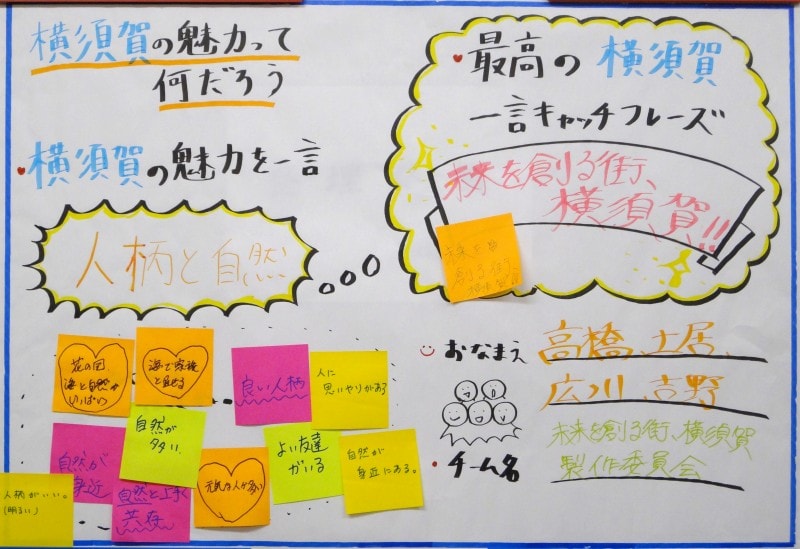 横須賀の魅力って
何だろう
・横須賀の魅力を一言
人柄と自然
・最高の 横須賀
一言キャッチフレーズ
未来を創る街、
横須賀!!
未来を
創る街
おなまえ
高橋 土居
広川 吉野
・チーム名
未来を創る街、横須賀
製作委員会
花の国
海と自然が
いっぱい
海で家族
と
良い人柄
人に
思いやりがある
自然が
身近
自然が
多い
自然と上手く
共存
元気な人が多い
よい友達
がいる
自然が
身近にある。
人柄がいい。
(明るい)